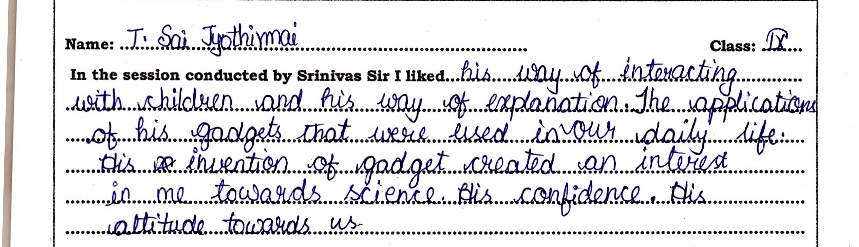 Name: T. Sai Jyothirmai Class: IX
In the session conducted by Srinivas Sir I liked his way of interacting
with children and his way of explanation. The applications
of his gadgets that were used in our daily life.
His invention of gadget created an interest
in me towards science. His confidence. His
attitude towards us.